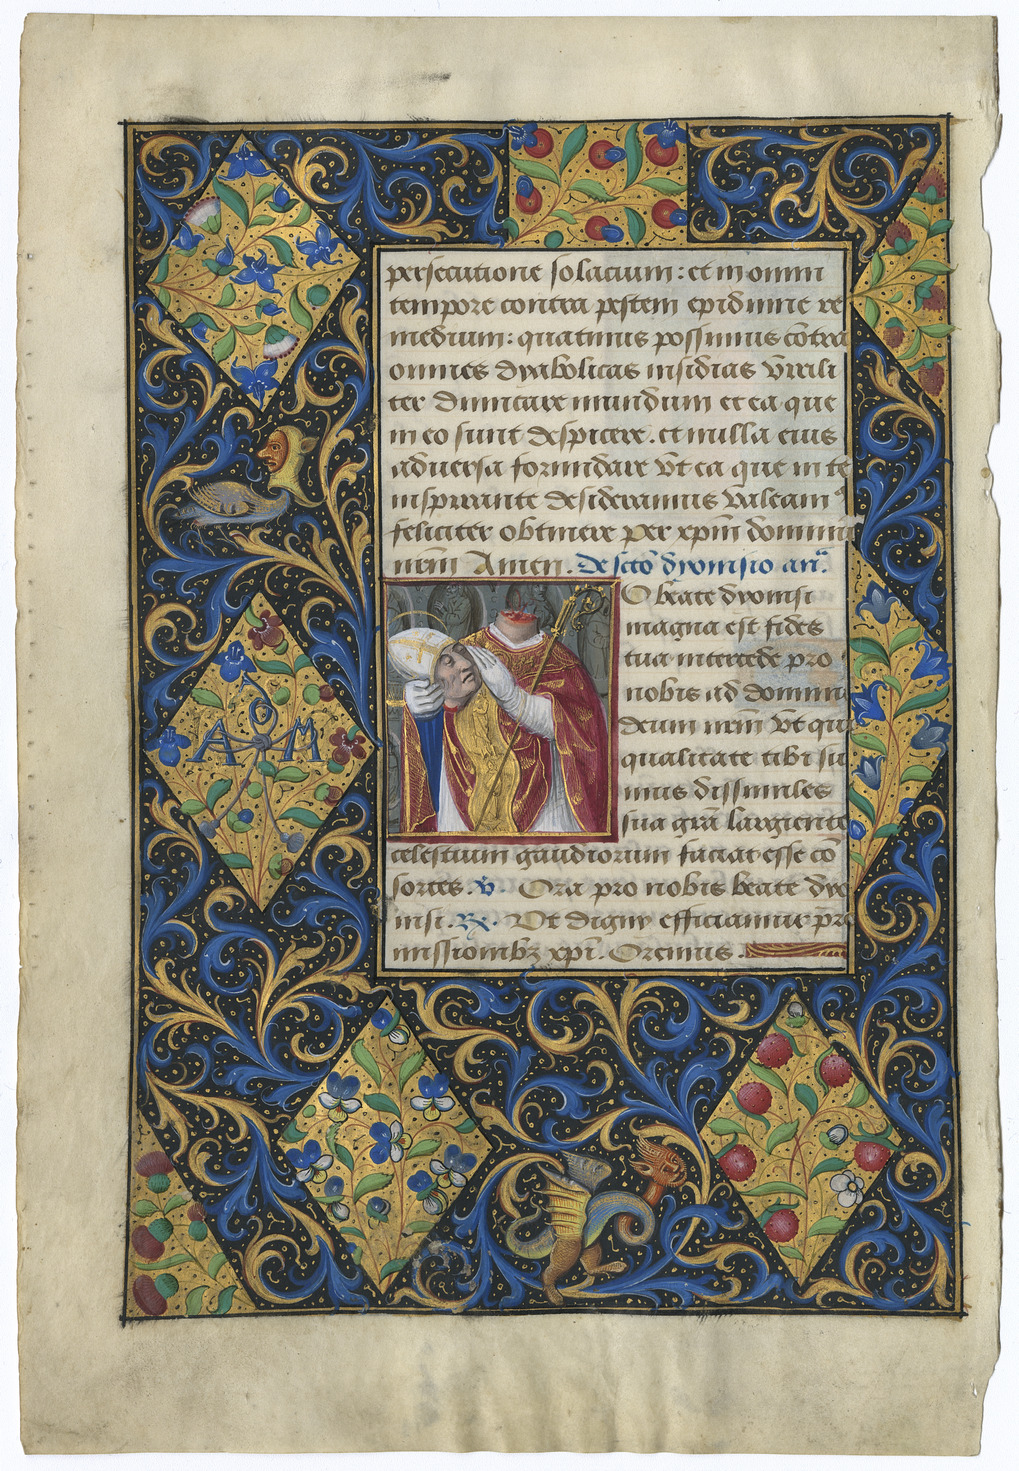 persecutione solacium : et in omni
tempore contra pestem epidimie re
medium : quatinus possimus cōtra
omnes dyabolicas insidias virili
ter dimicare mundum et ea que
in eo sunt despicere . et nulla eius
adversa formidare vt ea que in te
inspirante desideramus valeam9
feliciter obtinere per xpm̄ dominū
nrm̄ Amen . De scō dyonisio añ.
O beate dyonisi
magna est fides
tua intercede pro
nobis ad dominū
deum nrm̄ vt qui
qualitate tibi su
mus dissimiles
sua grā largiente
celestium gaudiorum faciat esse cō
sortes . V̄. Ora pro nobis beate dyo
nisi . R̄. Vt digni efficiamur pro
missionibꝫ xpī . Oremus .
A M